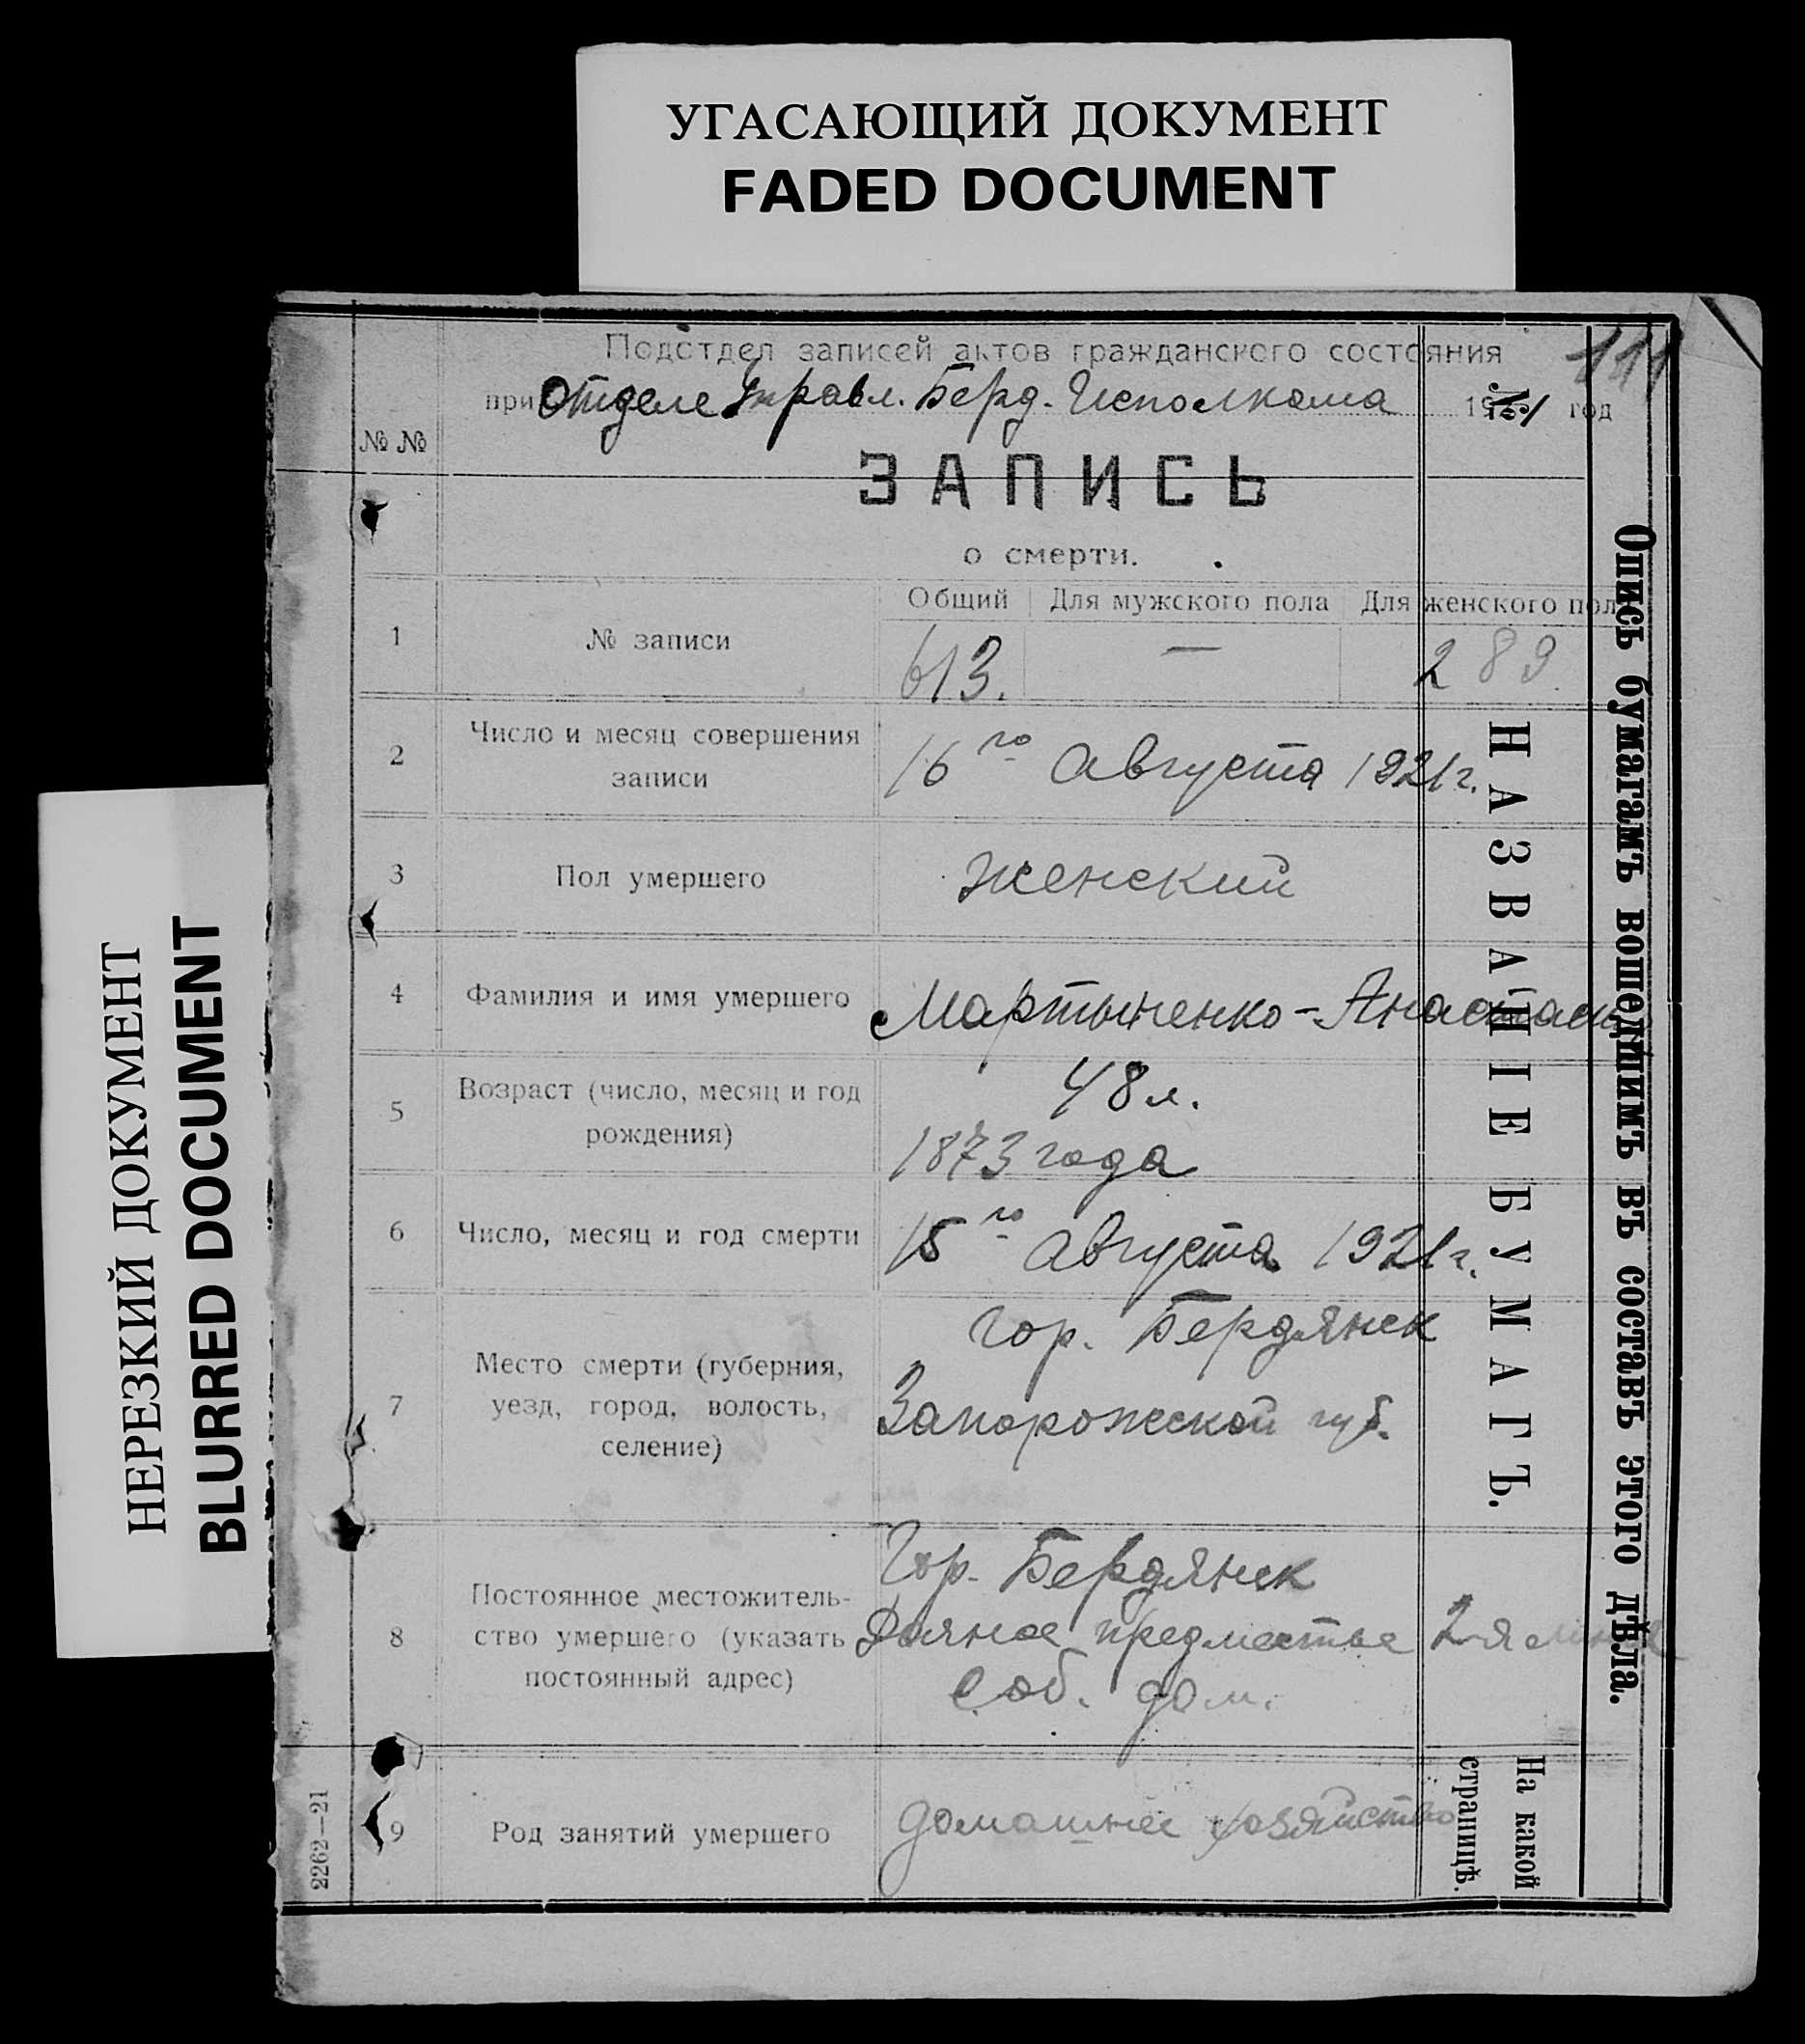 УГАСАЮЩИЙ ДОКУМЕНТ
FADED DOCUMENT
НЕРЕЗКИЙ ДОКУМЕНТ
BLURRED DOCUMENT
111
Подотдел записей актов гражданского состояния
при Отделе Управл. Берд. Исполкома 1921 год
№ №
ЗАПИСЬ
о смерти.
Общий Для мужского пола Для женского пол
1 № записи 613. — 289.
2 Число и месяц совершения
записи
16го Августа 1921г.
3 Пол умершего Женский
4 Фамилия и имя умершего Мартыненко-Анастасия
5 Возраст (число, месяц и год
рождения)
48 л.
1873 года
6 Число, месяц и год смерти 15го Августа 1921г.
7 Место смерти (губерния,
уезд, город, волость,
селение)
гор. Бердянск
Запорожской губ.
8 Постоянное местожитель-
ство умершего (указать
постоянный адрес)
Гор. Бердянск
предместье 2-я
Соб. дом.
9 Род занятий умершего домашнее хозяйство
2262—21
НАЗВАНІЕ БУМАГЪ.
На какой
страницѣ.
Опись бумагамъ вошедшимъ въ составъ этого дѣла.